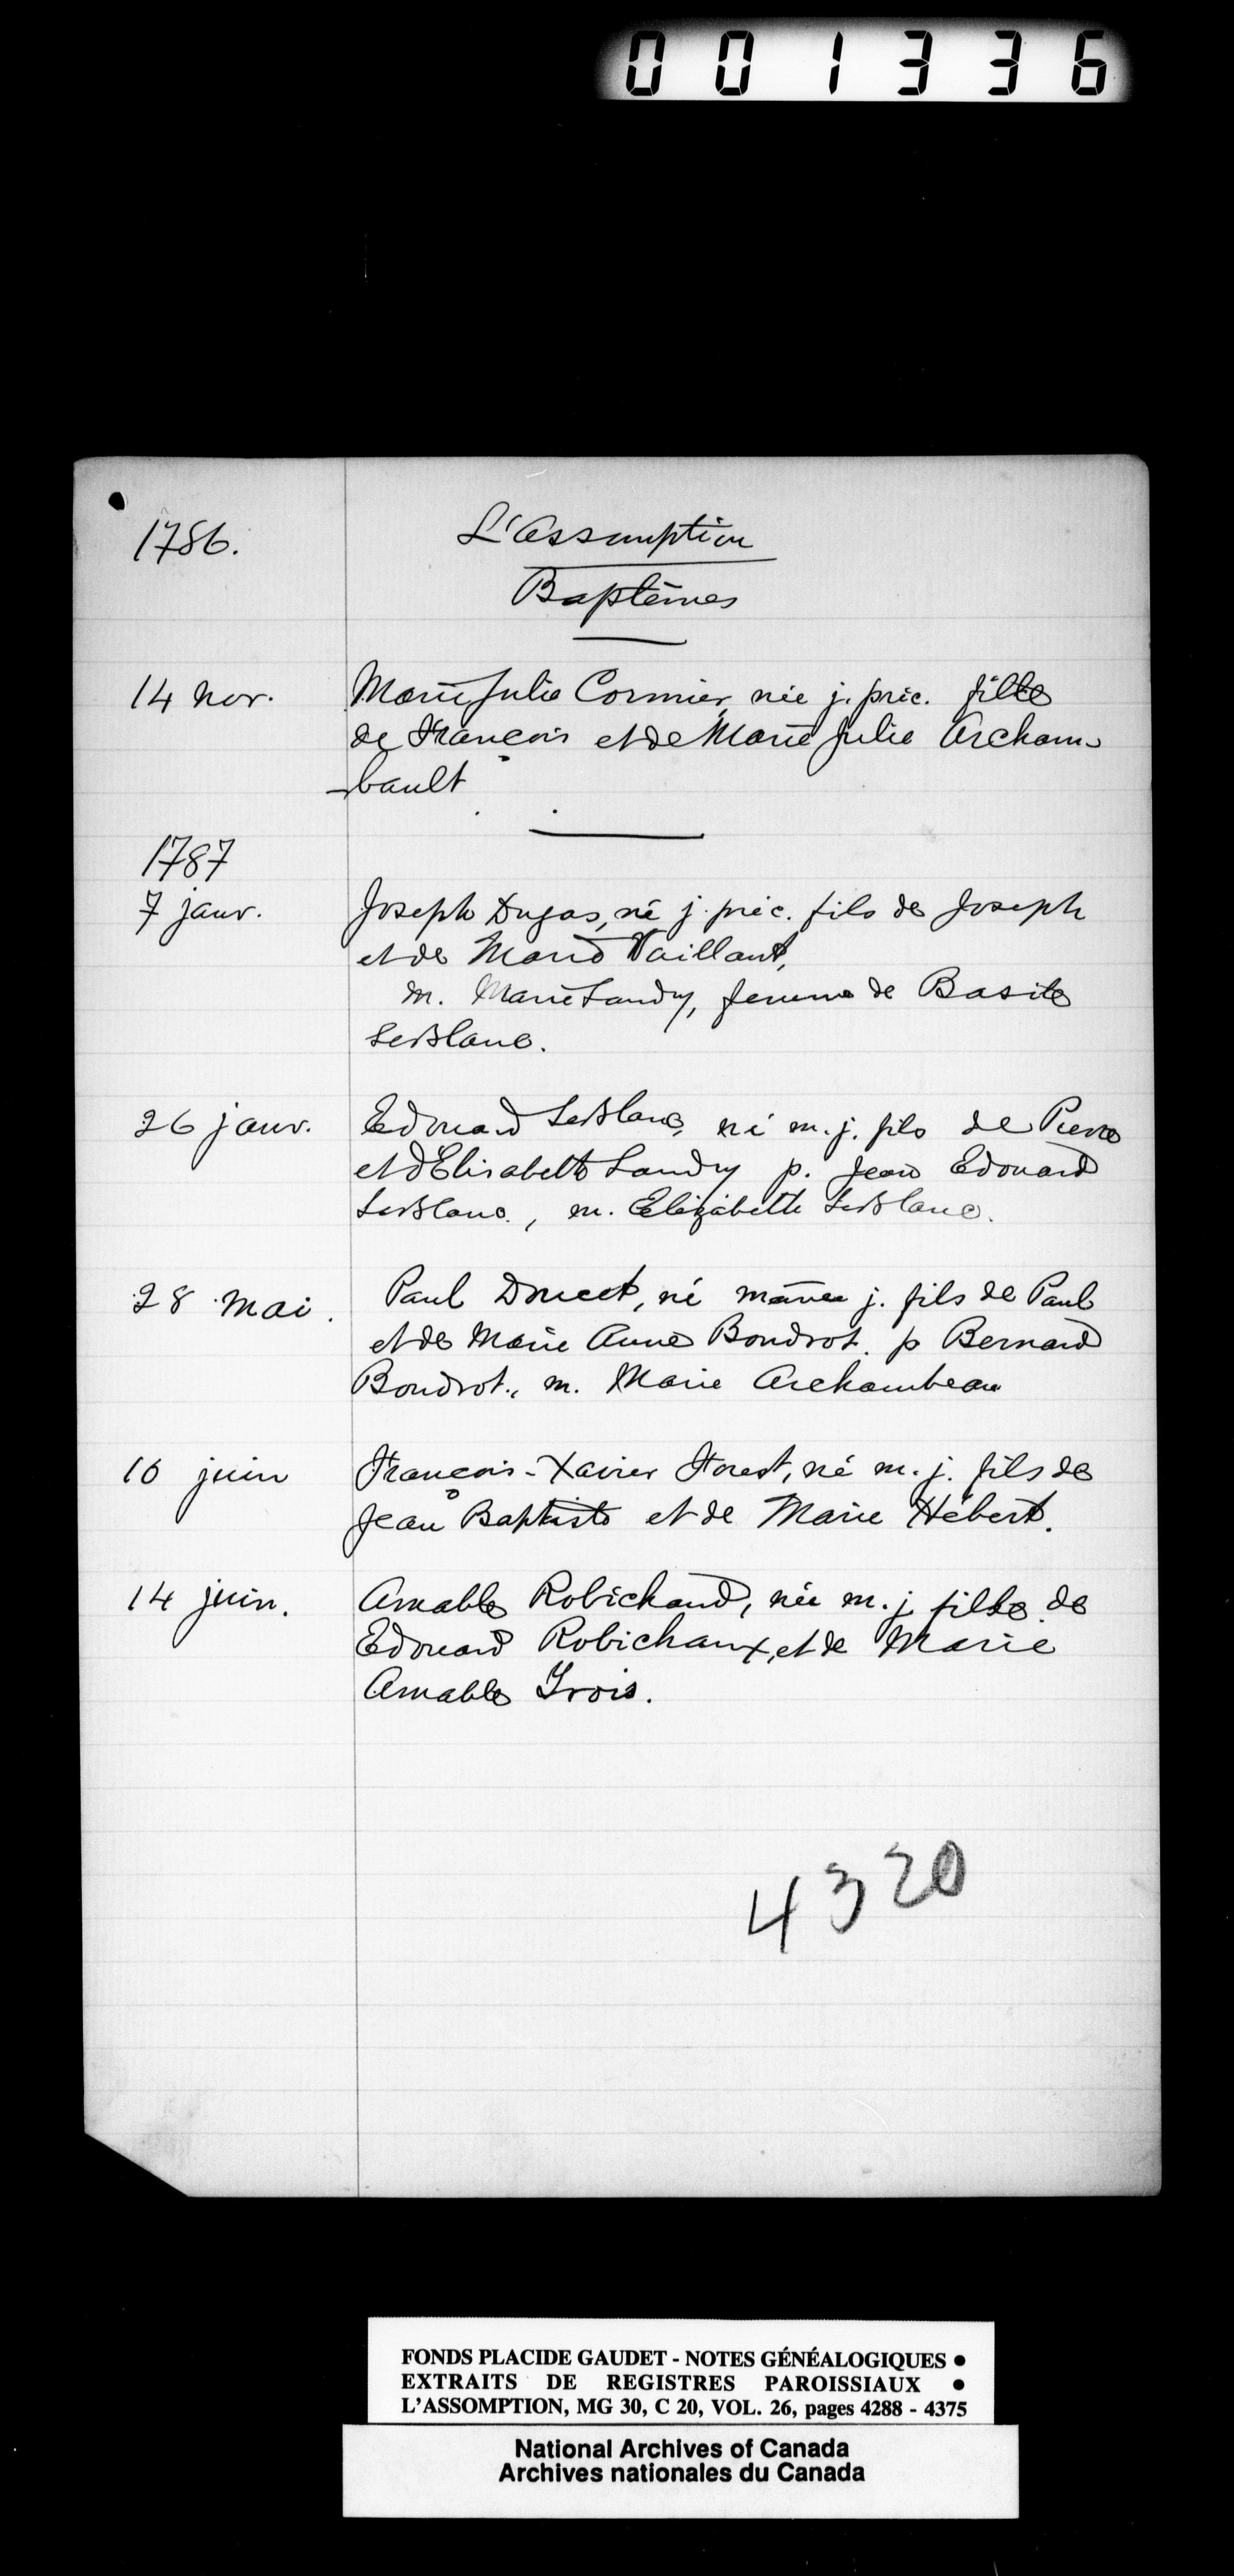 001336
1786.
L'Assomption
Baptêmes
14 nov. Marie Julie Cormier, née j. préc. fille
de François et de Marie Julie Archam-
-bault
1787
7 janv. Joseph Dugas, né j. préc. fils de Joseph
et de Marie Vaillant,
m. Marie Landry, femme de Basile
LeBlanc.
26 janv. Edouard LeBlanc, né m. j. fils de Pierre
et d'Elisabeth Landry p. Jean Edouard
LeBlanc., m. Elizabeth LeBlanc.
28 Mai. Paul Doucet, né même j. fils de Paul
et de Marie Anne Boudrot. p Bernard
Boudrot., m. Marie Archambeau
10 juin François-Xavier Forest, né m. j. fils de
Jean Baptiste et de Marie Hébert.
14 juin. Amable Robichaud, née m. j. fille de
Edouard Robichaux, et de Marie
Amable Irois.
4320
FONDS PLACIDE GAUDET - NOTES GÉNÉALOGIQUES •
EXTRAITS DE REGISTRES PAROISSIAUX •
L'ASSOMPTION, MG 30, C 20, VOL. 26, pages 4288 - 4375
National Archives of Canada
Archives nationales du Canada